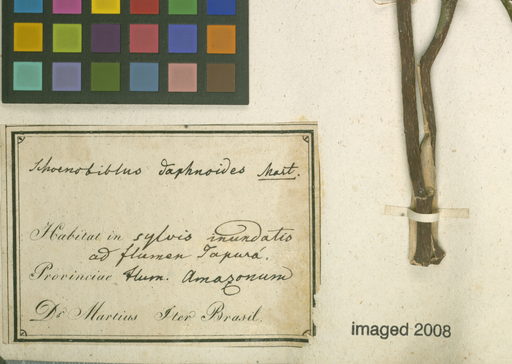 Schoenobiblus daphnoides Mart.
Habitat in sylvis inundatis
ad flumen Japurá.
Provinciae flum. Amazonum
Dr Martius Iter Brasil.
imaged 2008